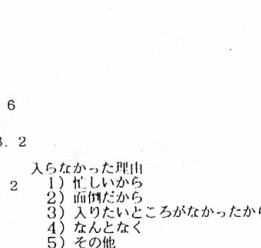 6
3. 2
入らなかった理由
2 1) 忙しいから
2) 面倒だから
3) 入りたいところがなかったから
4) なんとなく
5) その他